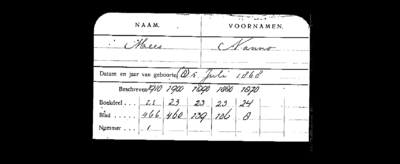 NAAM. VOORNAMEN.
Mees Nanno
Datum en jaar van geboorte 2 Juli 1868
Beschreven 1910 1900 1890 1880 1870
Boekdeel 21 23 23 23 24
Blad 466 460 139 106 8
Nummer 1